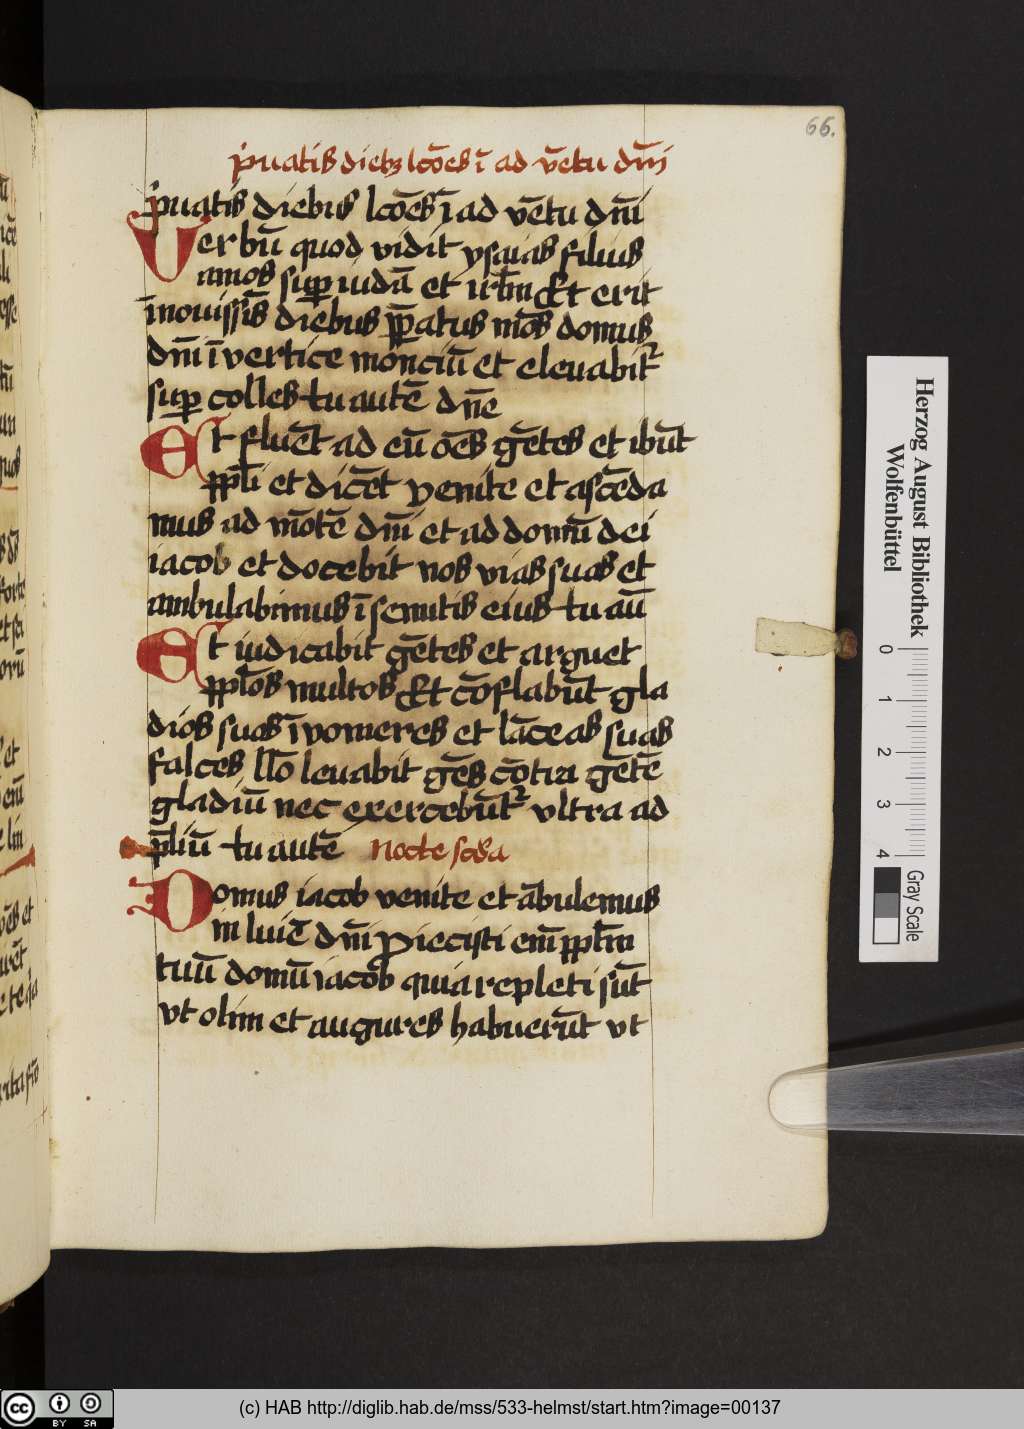 66.
p̱uatis diebꝫ lcōes ī ad vētu dn̄i
puatis diebus lcōes ī ad vētu dn̄i
Verbū quod vidit ysaias filius
amos suꝑ iudā et irl̄m Et erit
īnouissīs diebus p̄patus mōs domus
dn̄i ī vertice monciū et eleuabit᷑
suꝑ colles tu autē dn̄e
Et fluēt ad eū oēs gētes et ibūt
ppl̄i et dicēt venite et ascēda
mus ad mōtē dn̄i et ad domū dei
iacob et docebit nos vias suas et
ambulabimus ī semitis eius tu au̅
Et iudicabit gētes et arguet
ppl̄os multos Et cōflabūt gla
dios suos ī vomeres et lāceas suas
falces Nō leuabit gēs cōtra gētē
gladiū nec exercebūt᷑ vltra ad
p̄liū tu autē nocte scd̄a
Domus iacob venite et ābulemus
in luīe dn̄i Proiecisti em̄ ppl̄m
tuū domū iacob quia repleti sūt
vt olim et augures habuerūt vt
Herzog August Bibliothek
Wolfenbüttel
0 1 2 3 4
Gray Scale
cc BY SA
(c) HAB http://diglib.hab.de/mss/533-helmst/start.htm?image=00137